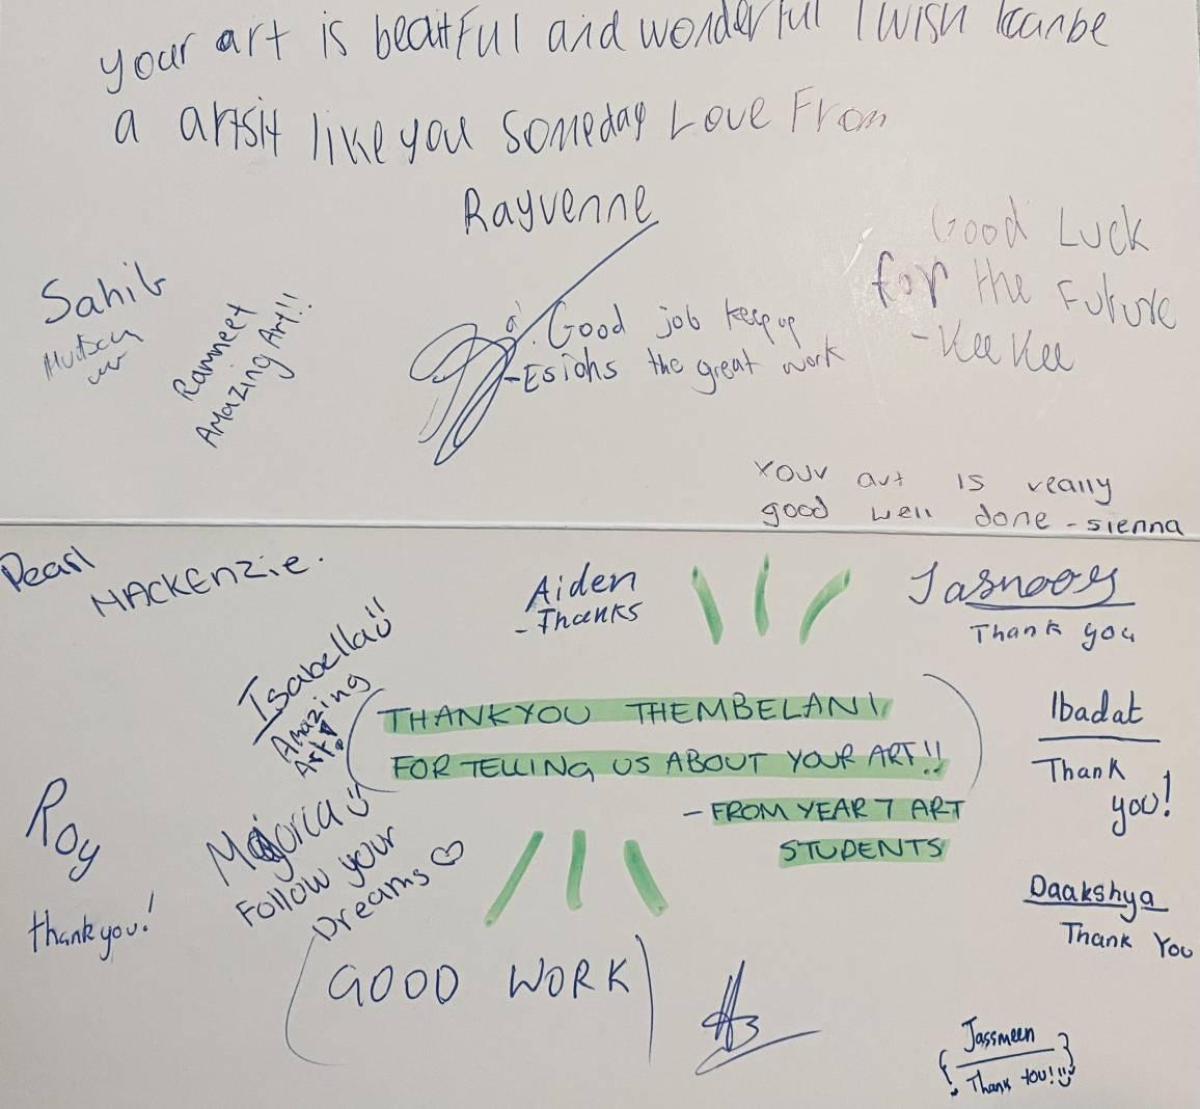 your art is beatFul and wonderful I wish I canbe
a artsit like you Someday Love From
Rayvenne
Good Luck
for the Future
- Kee Kee
Sahib
Ramneet
Amazing Art!!
Good job keep up
-Esichs the great work
Your art is really
good well done - sienna
Pearl
MACKENZie.
Aiden
- Thanks
Jasnoor
Thank you
Isabella
Amazing
Art!
THANKYOU THEMBELANI
FOR TELLING US ABOUT YOUR ART!!
- FROM YEAR 7 ART
STUDENTS
Ibadat
Thank
you!
Roy
thank you!
Majorica
Follow your
Dreams
Daakshya
Thank You
GOOD WORK
Jassmeen
Thank YOU!